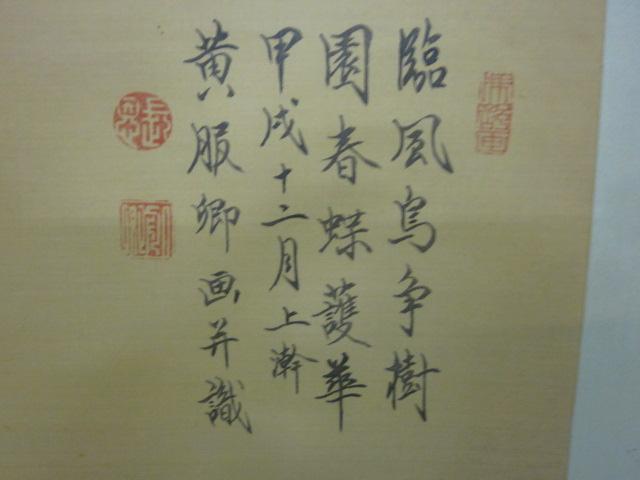 臨風鳥争樹
園春蝶護華
甲戌十二月上澣
黄服卿画并識